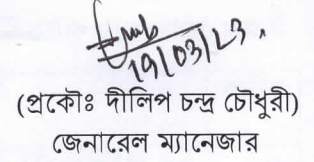 19/03/23.
(প্রকৌঃ দীলিপ চন্দ্র চৌধুরী)
জেনারেল ম্যানেজার